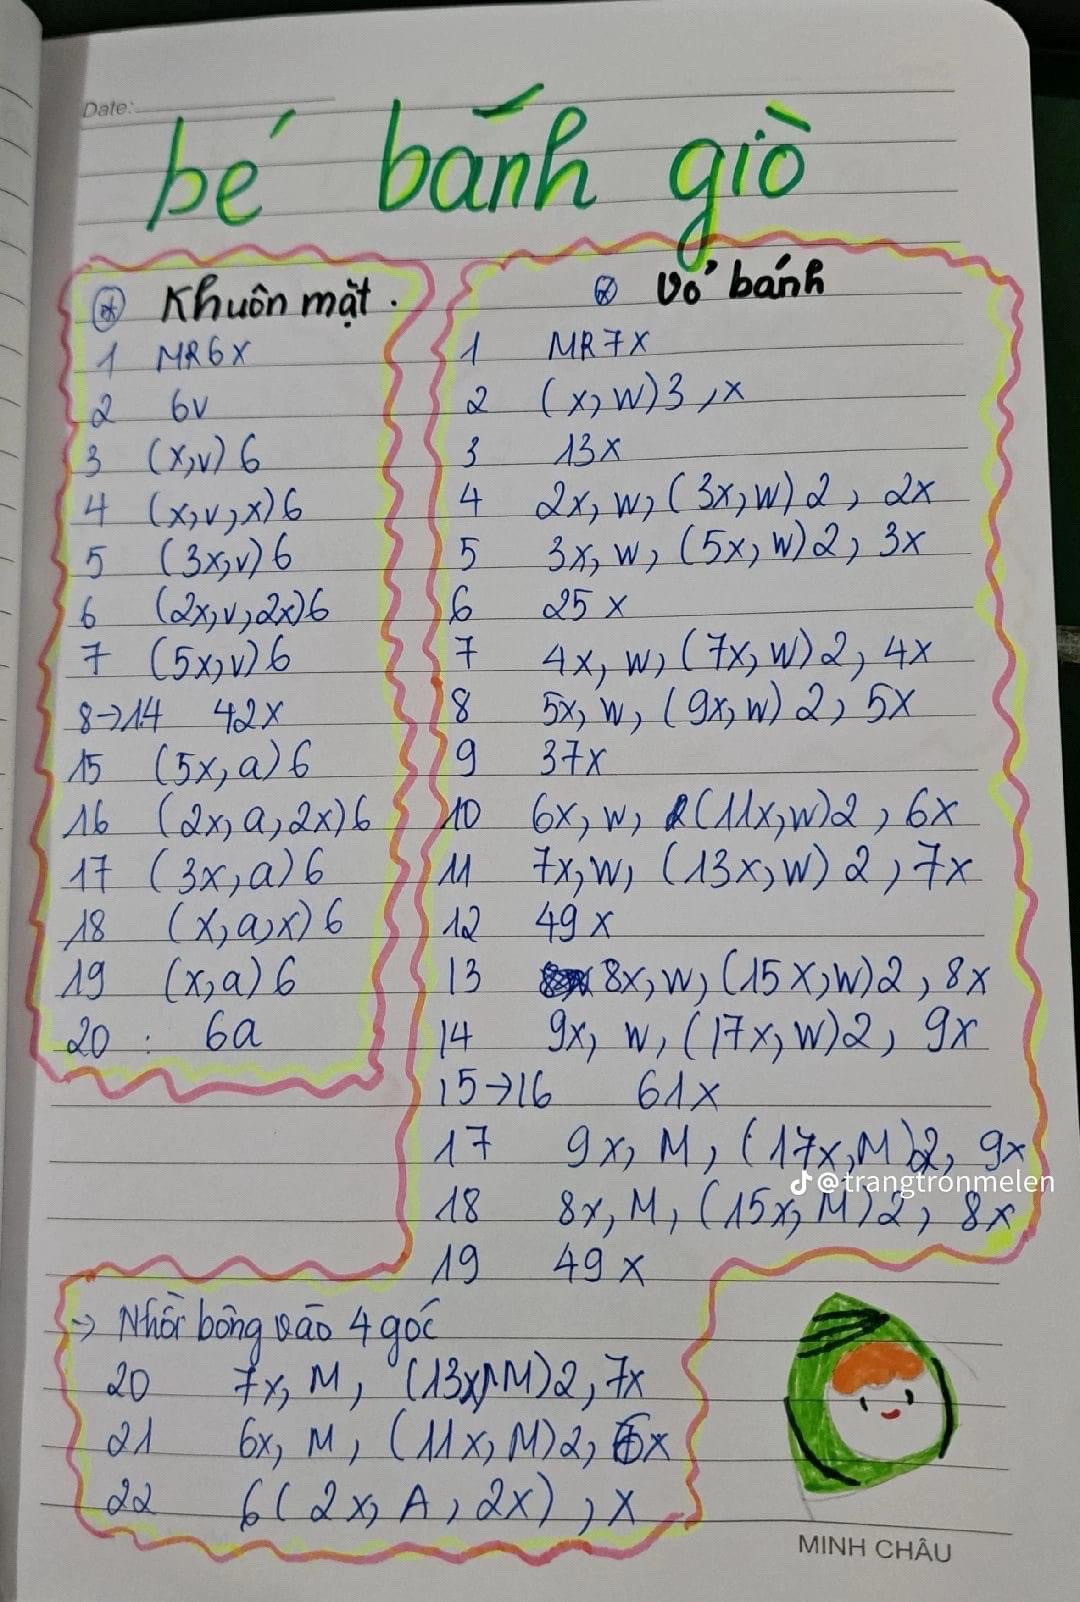 Date:
bé bánh giò
Khuôn mặt.
1 MR6X
2 6v
3 (x,v) 6
4 (x,v,x)6
5 (3x,v) 6
6 (2x,v,2x)6
7 (5x,v)6
8→14 42x
15 (5x,a)6
16 (2x,a,2x)6
17 (3x,a)6
18 (x,a,x)6
19 (x,a)6
20 : 6a
Vỏ bánh
1 MR7X
2 (x,w)3,x
3 13x
4 2x, w, (3x,w)2, 2x
5 3x, w, (5x,w)2, 3x
6 25x
7 4x, w, (7x,w)2, 4x
8 5x, w, (9x,w)2, 5x
9 37x
10 6x, w, (11x,w)2, 6x
11 7x,w, (13x,w)2, 7x
12 49x
13 8x,w, (15x,w)2, 8x
14 9x, w, (17x,w)2, 9x
15→16 61x
17 9x, M, (17x,M)2, 9x
@trangtronmelen
18 8x, M, (15x, M)2, 8x
19 49x
→ Nhồi bông vào 4 góc
20 7x, M, (13x,M)2, 7x
21 6x, M, (11x, M)2, 6x
22 6(2x, A, 2x), x
MINH CHÂU